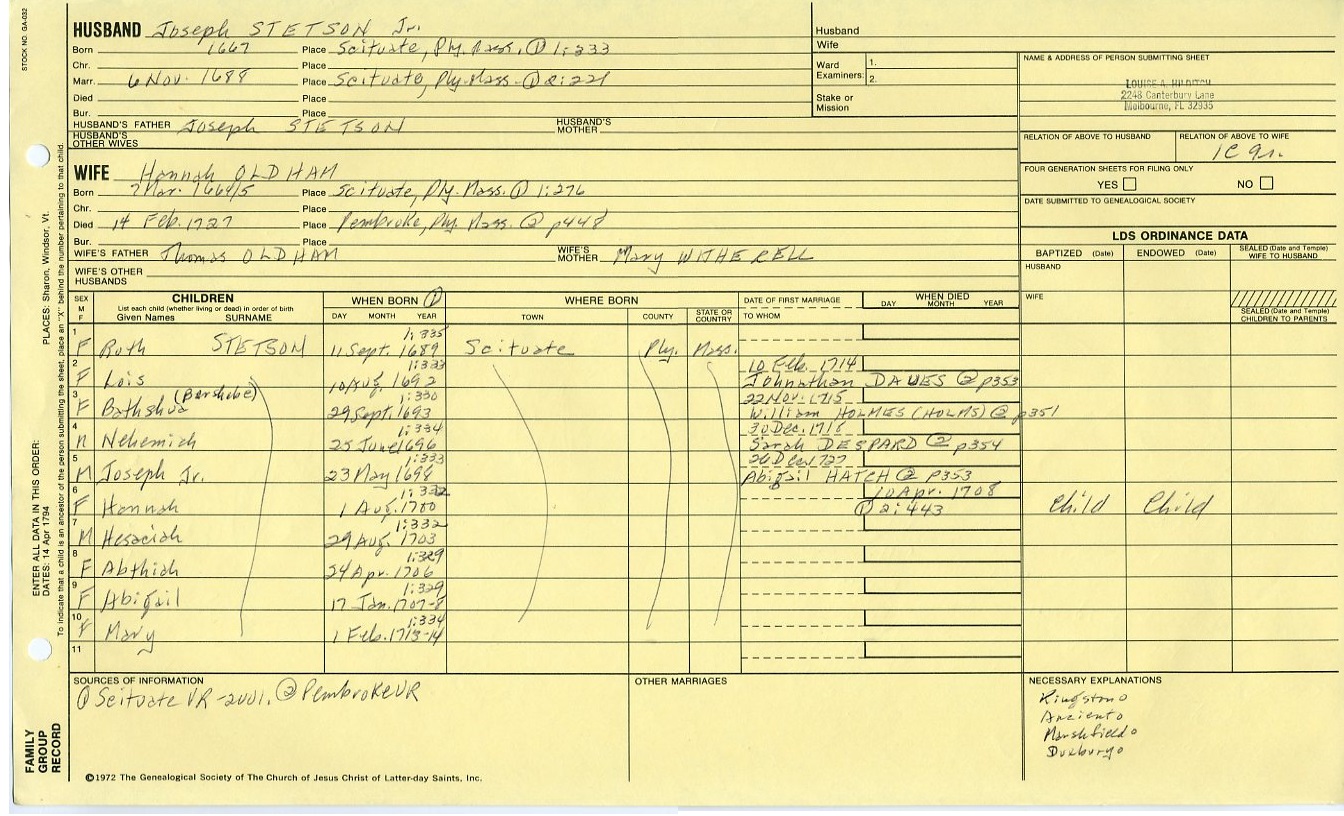 STOCK NO. GA-032
HUSBAND Joseph STETSON Jr.
Born 1667 Place Scituate, Ply. Mass. ① 1:233
Chr. Place
Marr. 6 Nov. 1688 Place Scituate, Ply. Mass. ① 2:221
Died Place
Bur. Place
HUSBAND'S FATHER Joseph STETSON HUSBAND'S MOTHER
HUSBAND'S OTHER WIVES
Husband
Wife
Ward Examiners: 1.
2.
Stake or Mission
NAME & ADDRESS OF PERSON SUBMITTING SHEET
LOUISE A. HILDITCH
2248 Canterbury Lane
Melbourne, FL 32935
RELATION OF ABOVE TO HUSBAND RELATION OF ABOVE TO WIFE
FOUR GENERATION SHEETS FOR FILING ONLY
YES NO
DATE SUBMITTED TO GENEALOGICAL SOCIETY
WIFE Hannah OLDHAM
Born 7 Mar. 1664/5 Place Scituate, Ply. Mass. ① 1:276
Chr. Place
Died 14 Feb. 1727 Place Pembroke, Ply. Mass. ② p448
Bur. Place
WIFE'S FATHER Thomas OLDHAM WIFE'S MOTHER Mary WITHERELL
WIFE'S OTHER HUSBANDS
LDS ORDINANCE DATA
BAPTIZED (Date) ENDOWED (Date) SEALED (Date and Temple) WIFE TO HUSBAND
HUSBAND
WIFE
SEALED (Date and Temple) CHILDREN TO PARENTS
SEX M F CHILDREN WHEN BORN ① WHERE BORN DATE OF FIRST MARRIAGE WHEN DIED
List each child (whether living or dead) in order of birth
Given Names SURNAME DAY MONTH YEAR TOWN COUNTY STATE OR COUNTRY TO WHOM DAY MONTH YEAR
1 1:335
F Ruth STETSON 11 Sept. 1689 Scituate Ply. Mass.
2 1:333 10 Feb. 1714
F Lois 10 Aug. 1692 Johnathan DAWES @ p353
3 (Barshebe) 1:330 22 Nov. 1715
F Bathshua 29 Sept. 1693 William HOLMES (HOLMS) @ p351
4 1:334 30 Dec. 1718
M Nehemiah 25 June 1696 Sarah DESPARD ② p354
5 1:333 26 Dec 1727
M Joseph Jr. 23 May 1698 Abigail HATCH @ p353
6 1:332 10 Apr. 1708
F Hannah 1 Aug. 1700 ① 2:443 Child Child
7 1:332
M Hesaciah 29 Aug. 1703
8 1:329
F Abthiah 24 Apr. 1706
9 1:329
F Abigail 17 Jan. 1707-8
10 1:334
F Mary 1 Feb. 1713-14
11
SOURCES OF INFORMATION
① Scituate VR - 2001. ② Pembroke VR
OTHER MARRIAGES
NECESSARY EXPLANATIONS
Kingston o
Marshfield o
Duxbury o
©1972 The Genealogical Society of The Church of Jesus Christ of Latter-day Saints, Inc.
FAMILY GROUP RECORD
ENTER ALL DATA IN THIS ORDER:
DATES: 14 Apr 1794
PLACES: Sharon, Windsor, Vt.
To indicate that a child is an ancestor of the person submitting the sheet, place an "X" behind the number pertaining to that child.